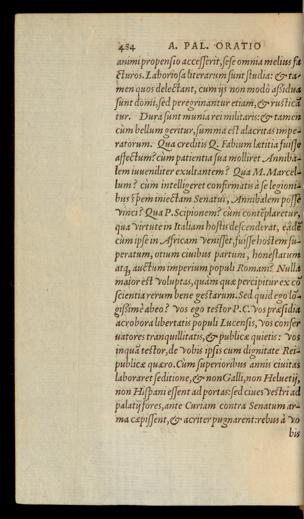 484 A. PAL. ORATIO
animi propensio accesserit, sese omnia melius fa
cturos. Laboriosa literarum sunt studia: & ta-
men quos delectant, cum ijs non modò assidua
sunt domi, sed peregrinantur etiam, & rusticā
tur. Dura sunt munia rei militaris: & tamen
cùm bellum geritur, summa est alacritas impe-
ratorum. Qua creditis Q. Fabium lætitia fuisse
affectum? cùm patientia sua molliret Anniba-
lem iuueniliter exultantem? Qua M. Marcel-
lum? cùm intelligeret confirmatis à se legioni-
bus spem iniectam Senatui, Annibalem posse
vinci? Qua P. Scipionem? cùm contēplaretur,
qua virtute in Italiam hostis descenderat, eadē
cùm ipse in Africam venisset, fuisse hostem su-
peratum, otium ciuibus partum, honestatum
atq, auctum imperium populi Romani? Nulla
maior est voluptas, quàm quæ percipitur ex cō
scientia rerum bene gestarum. Sed quid ego lō-
gissimè abeo? vos ego testor P. C. vos præsidia
ac robora libertatis populi Lucensis, vos conser
uatores tranquillitatis, & publicæ quietis: vos
inquā testor, de vobis ipsis cum dignitate Rei-
publicæ quæro. Cùm superioribus annis ciuitas
laboraret seditione, & non Galli, non Heluetij,
non Hispani essent ad portas: sed ciues vestri ad
palatij fores, ante Curiam contra Senatum ar-
ma cæpissent, & acriter pugnarent: rebus à vo
bis